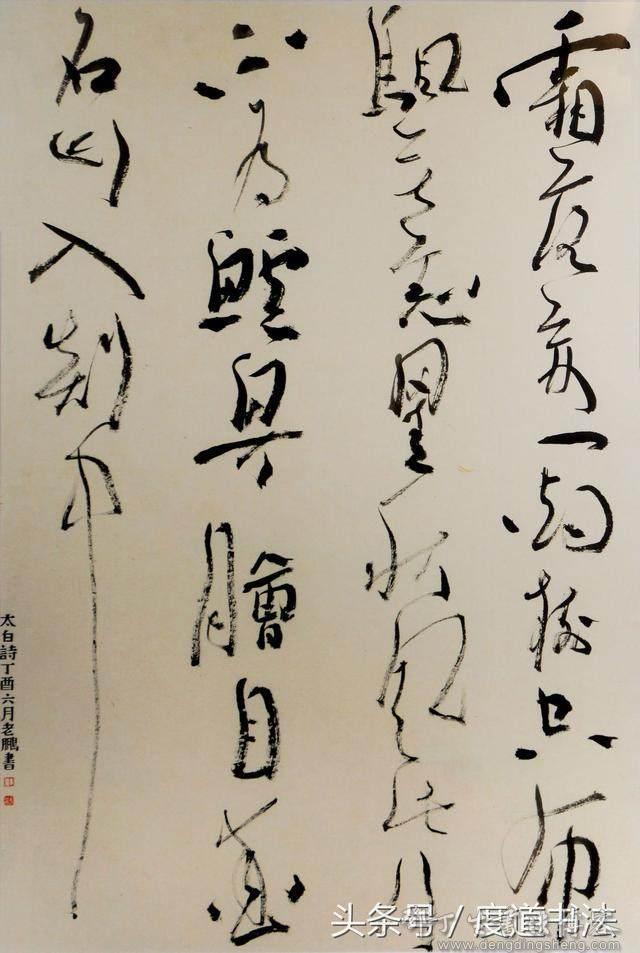 霜落荆门烟樹空布
颿無恙罣秋風此行
不為鱸魚膾自愛
名山入剡中
太白詩丁酉六月老鵬書
头条号/度道书法
www.dengdingsheng.com